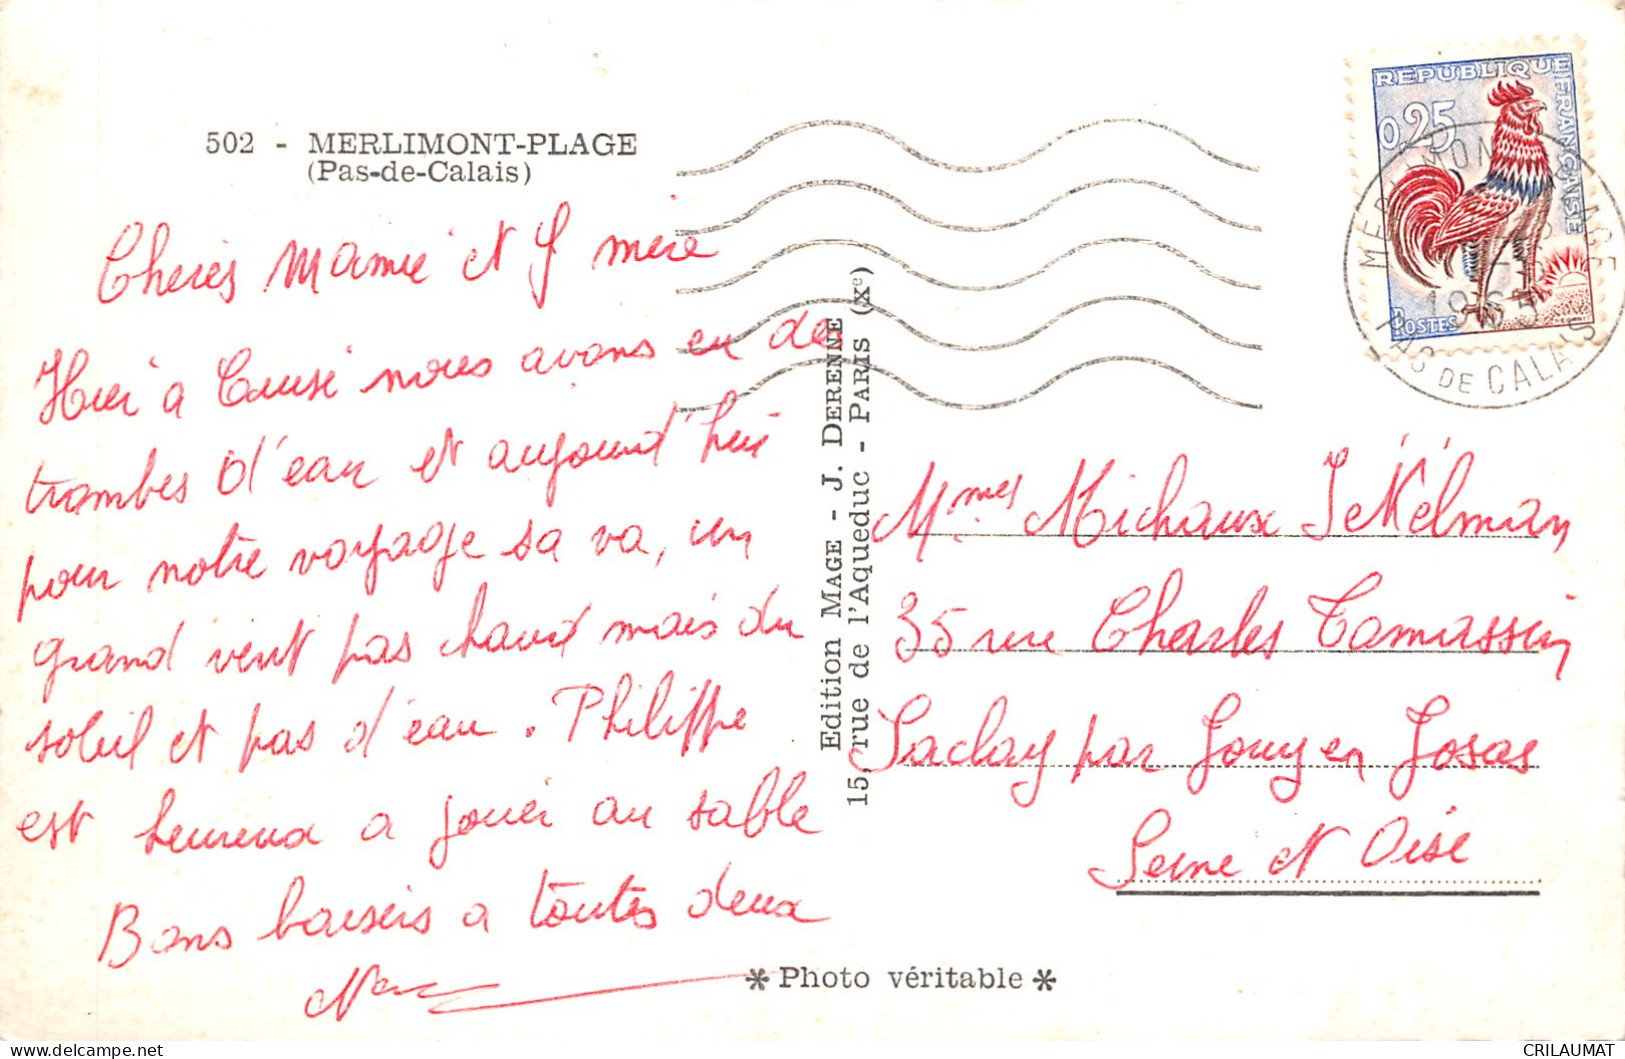 502 - MERLIMONT-PLAGE
(Pas-de-Calais)
Cheries Mamie et G mère
Hier a Cucusi nous avons eu des
trombes d'eau et aujourd'hui
pour notre voyage sa va, un
grand vent pas chaud mais du
soleil et pas d'eau. Philippe
est heureux a jouer au sable
Bons baisers a toutes deux
Edition MAGE - J. DERENNE
15, rue de l'Aqueduc - PARIS (Xe)
REPUBLIQUE FRANÇAISE
0,25
POSTES
MERLIMONT PLAGE
1965
PAS DE CALAIS
Mmes Michaux Jekelman
35 rue Charles Tomassin
Saclay par Jouy en Josas
Seine et Oise
* Photo véritable *
delcampe.net
CRILAUMAT